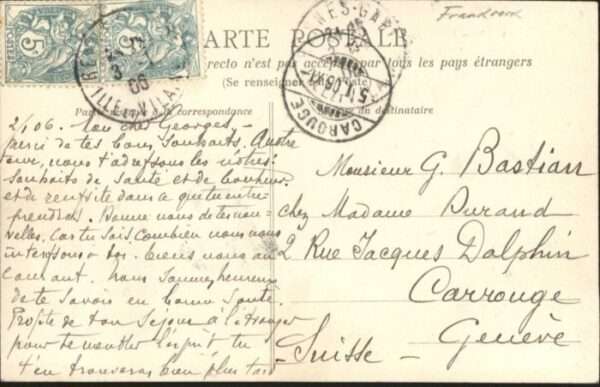 Frankreich
CARTE POSTALE
recto n'est pas accepté par tous les pays étrangers
(Se renseigner à la Poste)
Partie réservée à la correspondance
du destinataire
5
5
POSTES
RENNES-GARE
ILLE-ET-VILAINE
3
06
CAROUGE
5 I 06
2/1 06. Mon cher Georges, –
merci de tes bons souhaits. A notre
tour, nous t'adressons les nôtres :
souhaits de santé et de bonheur
et de réussite dans ce que tu entre-
prendras. Donne nous de tes nou-
velles, car tu sais combien nous nous
intéressons à toi. Tiens nous au
courant. nous sommes heureux
de te savoir en bonne santé.
Profite de ton séjour à l'étranger
pour te meubler l'esprit tu
t'en trouveras bien plus tard
Monsieur G. Bastian
chez Madame Durand
2 Rue Jacques Dalphin
Carrouge
Genève
– Suisse –